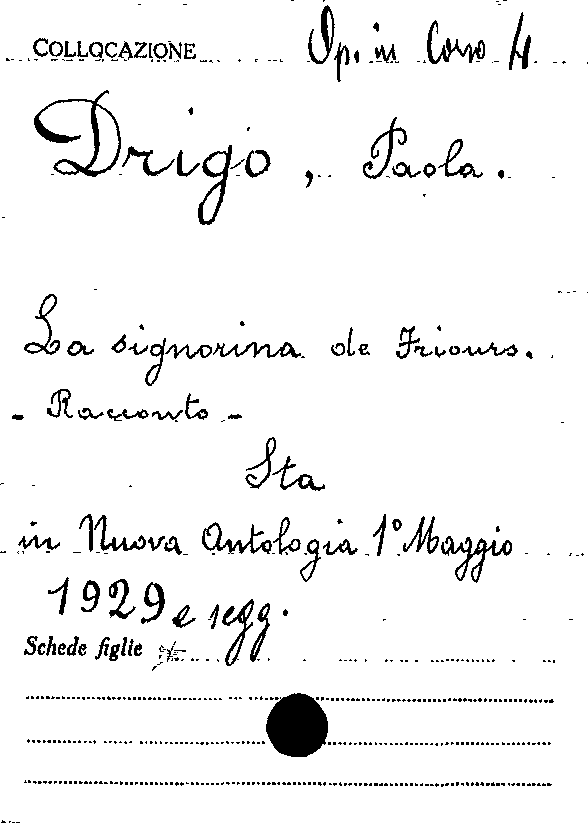 COLLOCAZIONE Op. in Corso 4
Drigo, Paola.
La signorina de Friours.
- Racconto -
Sta
in Nuova Antologia 1° Maggio
1929 e segg.
Schede figlie